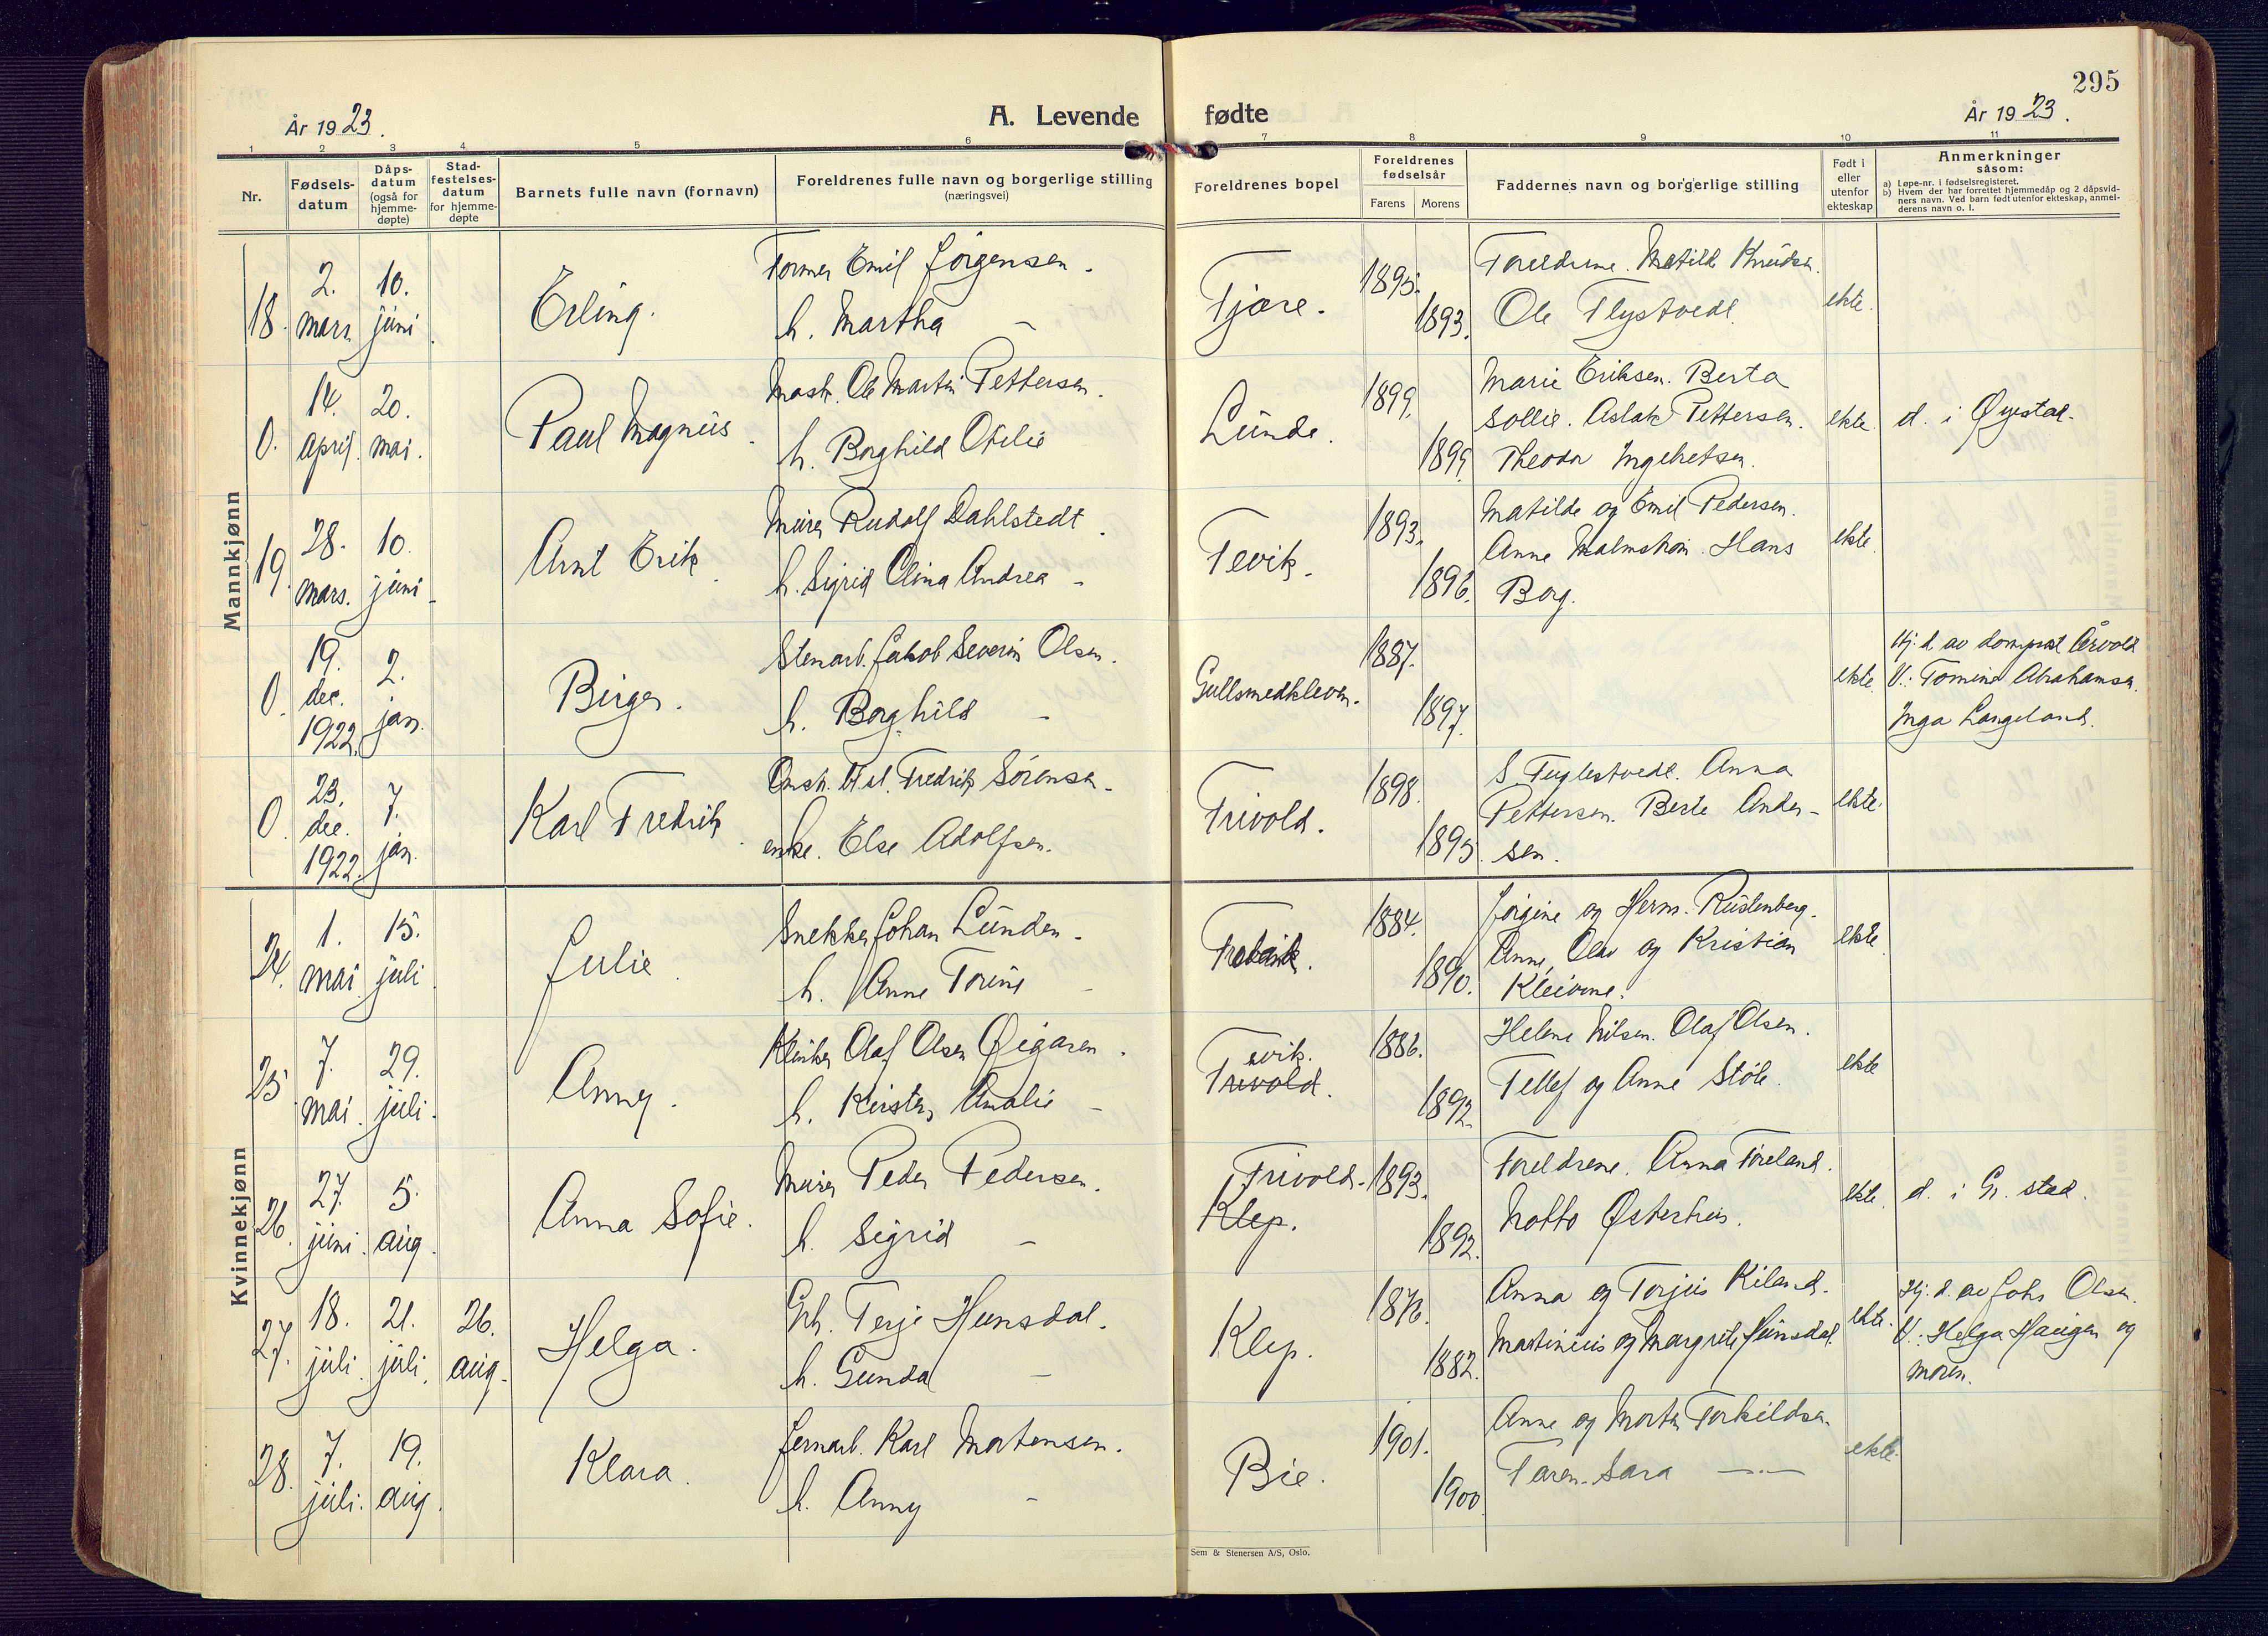 295
År 1923.
A. Levende
fødte
År 1923.
1 2 3 4 5 6 7 8 9 10 11
Nr.
Fødsels-
datum
Dåps-
datum
(også for
hjemme-
døpte)
Stad-
festelses-
datum
for hjemme-
døpte
Barnets fulle navn (fornavn)
Foreldrenes fulle navn og borgerlige stilling
(næringsvei)
Foreldrenes bopel
Foreldrenes
fødselsår
Farens Morens
Faddernes navn og borgerlige stilling
Født i
eller
utenfor
ekteskap
Anmerkninger
såsom:
a) Løpe-nr. i fødselsregisteret.
b) Hvem der har forrettet hjemmedåp og 2 dåpsvid-
ners navn. Ved barn født utenfor ekteskap, anmel-
derens navn o. l.
Mannkjønn
18.
2.
mars
10.
juni
Erling.
Former Emil Jörgensen.
h. Martha –
Fjære.
1895.
1893.
Foreldrene. Matilde Knudsen.
Ole Flystvedt.
ekte.
0.
14.
april.
20.
mai.
Paul Magnus.
Mask. Ole Martin Pettersen.
h. Borghild Otelie
Lunde.
1899.
1899
Marie Eriksen. Berta
Sollie. Aslak Pettersen.
Theodor Ingebretsen.
ekte.
d. i Øyestad.
19.
28.
mars.
10.
juni
Arnt Erik.
Murer Rudolf Dahlstedt.
h. Sigrid Elina Andrea –
Fevik.
1893.
1896.
Matilde og Emil Pedersen.
Anne Malmstrøm. Hans
Borg.
ekte.
0.
19.
dec.
1922.
2.
jan.
Birger.
Stenarb. Jakob Severin Olsen.
h. Borghild –
Gullsmedkleven.
1887.
1897.
ekte.
Hj. d. av domprost Årvold
V: Tomine Abrahamsen.
Inga Langeland.
0.
23.
dec.
1922.
7.
jan.
Karl Fredrik.
Fredrik Sörensen.
Else Adolfsen.
Frivold.
1898.
1895.
S. Fuglestvedt. Anna
Pettersen. Berte Ander-
sen.
ekte.
Kvinnekjønn
24.
1.
mai
15.
juli
Julie.
Snekker Johan Lunden.
h. Anne Torine –
1884.
1890.
Jörgine og Herm. Rustenberg.
Anne, Olav og Kristian
Kleivene.
ekte
25.
7.
mai.
29.
juli.
Anny.
Klinker Olaf Olsen Øigaren.
h. Kirsten Amalie –
evik.
Frivold.
1886.
1892.
Helene Nilsen. Olaf Olsen.
Tellef og Anne Støle.
ekte
26.
27.
juni.
5.
aug.
Anna Sofie.
Murer Peder Pedersen.
h. Sigrid –
Frivold.
Klep.
1893.
1892.
Foreldrene. Anna Föreland.
Notto Østerhus.
ekte.
d. i Gr. stad.
27.
18.
juli.
21.
juli.
26.
aug.
Helga.
Grh. Terje Hunsdal.
h. Gunda –
Klep.
1876.
1882.
Anna og Torjus Kiland.
Martinius og Margrete Hunsdal.
ekte.
Hj. d. av Johs Olsen.
V: Helga Haugen og
moren.
28.
7.
juli.
19.
aug.
Klara.
Jernarb. Karl Mortensen.
h. Anny –
Bie.
1901.
1900
Anne og Morten Torkildsen.
Faren. Sara —"—
ekte.
Sem & Stenersen A/S, Oslo.